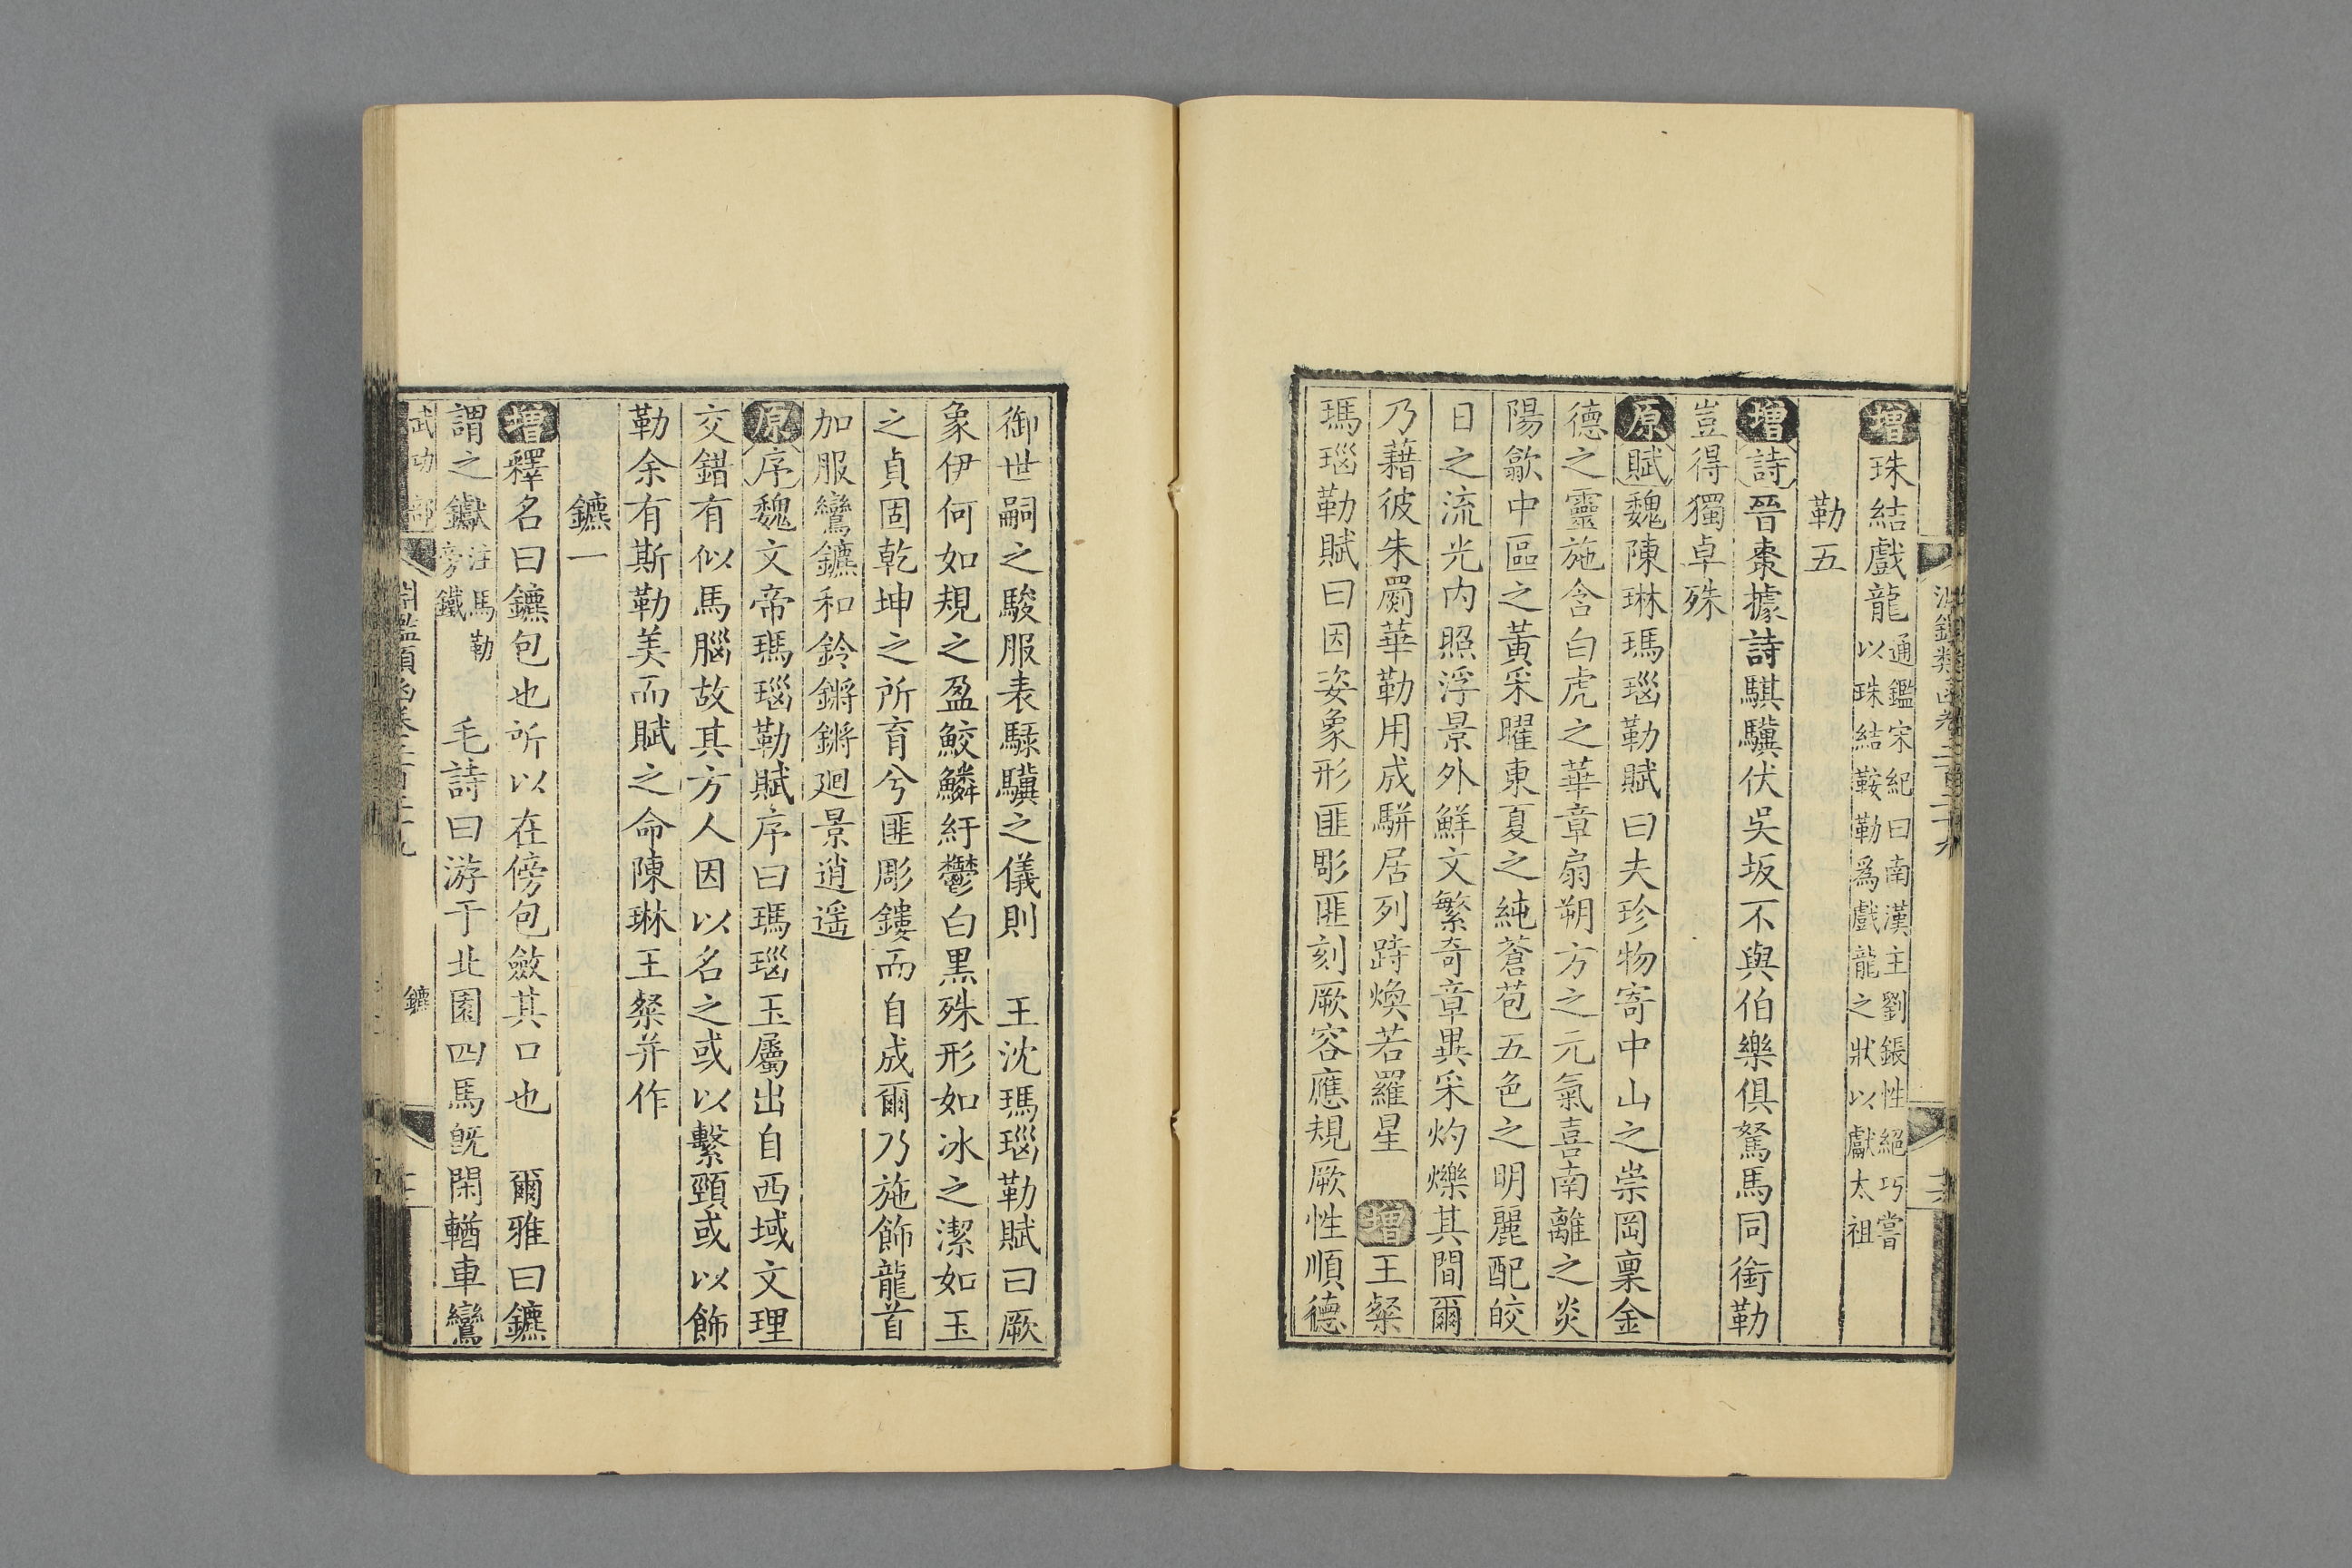 增珠結戲龍通鑑宋紀曰南漢主劉鋹性絕巧嘗
以珠結鞍勒爲戲龍之狀以獻太祖
勒五
增詩晉棗據詩騏驥伏吳坂不與伯樂俱駑馬同銜勒
豈得獨卓殊
原賦魏陳琳瑪瑙勒賦曰夫珍物寄中山之崇岡稟金
德之靈施含白虎之華章扇朔方之元氣喜南離之炎
陽歙中區之黃采曜東夏之純蒼苞五色之明麗配皎
日之流光內照浮景外鮮文繁奇章異采灼爍其間爾
乃藉彼朱罽華勒用成駢居列跱煥若羅星 增王粲
瑪瑙勒賦曰因姿象形匪彫匪刻厥容應規厥性順德
御世嗣之駿服表騄驥之儀則 王沈瑪瑙勒賦曰厥
象伊何如規之盈鮫鱗紆鬱白黑殊形如冰之潔如玉
之貞固乾坤之所育兮匪彫鏤而自成爾乃施飾龍首
加服鸞鑣和鈴鏘鏘廻景逍遥
原序魏文帝瑪瑙勒賦序曰瑪瑙玉屬出自西域文理
交錯有似馬腦故其方人因以名之或以繫頸或以飾
勒余有斯勒美而賦之命陳琳王粲并作
鑣一
增釋名曰鑣包也所以在傍包斂其口也 爾雅曰鑣
謂之钀注馬勒旁鐵 毛詩曰游于北園四馬旣閑輶車鸞
武功部 淵鑑類函卷二百二十九 鑣